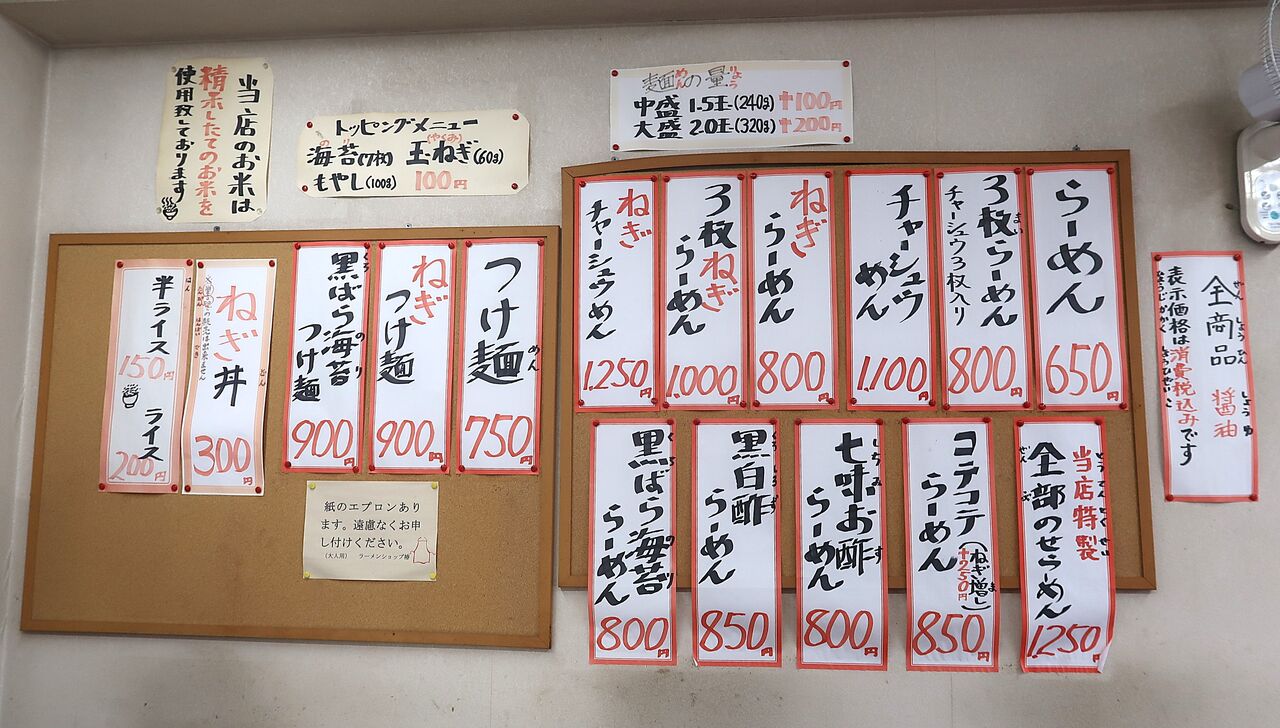 当店のお米は
精米したてのお米を
使用致しております
トッピングメニュー
海苔(7枚) 玉ねぎ(60g)
もやし(100g) 100円
麺の量
中盛 1.5玉(240g) +100円
大盛 2.0玉(320g) +200円
らーめん
650円
3枚らーめん
チャーシュウ3枚入り
800円
チャーシュウ
めん
1,100円
ねぎ
らーめん
800円
3枚ねぎ
らーめん
1,000円
ねぎ
チャーシュウめん
1,250円
当店特製
全部のせらーめん
1,250円
コテコテ(ねぎ増し
+250円)
らーめん
850円
七味お酢
らーめん
800円
黒白酢
らーめん
850円
黒ばら海苔
らーめん
800円
全商品 醤油
表示価格は消費税込みです
つけ麺
750円
ねぎ
つけ麺
900円
黒ばら海苔
つけ麺
900円
ねぎ丼
300円
半ライス
150円
ライス
200円
紙のエプロンあり
ます。遠慮なくお申
し付けください。
(大人用) ラーメンショップ椿